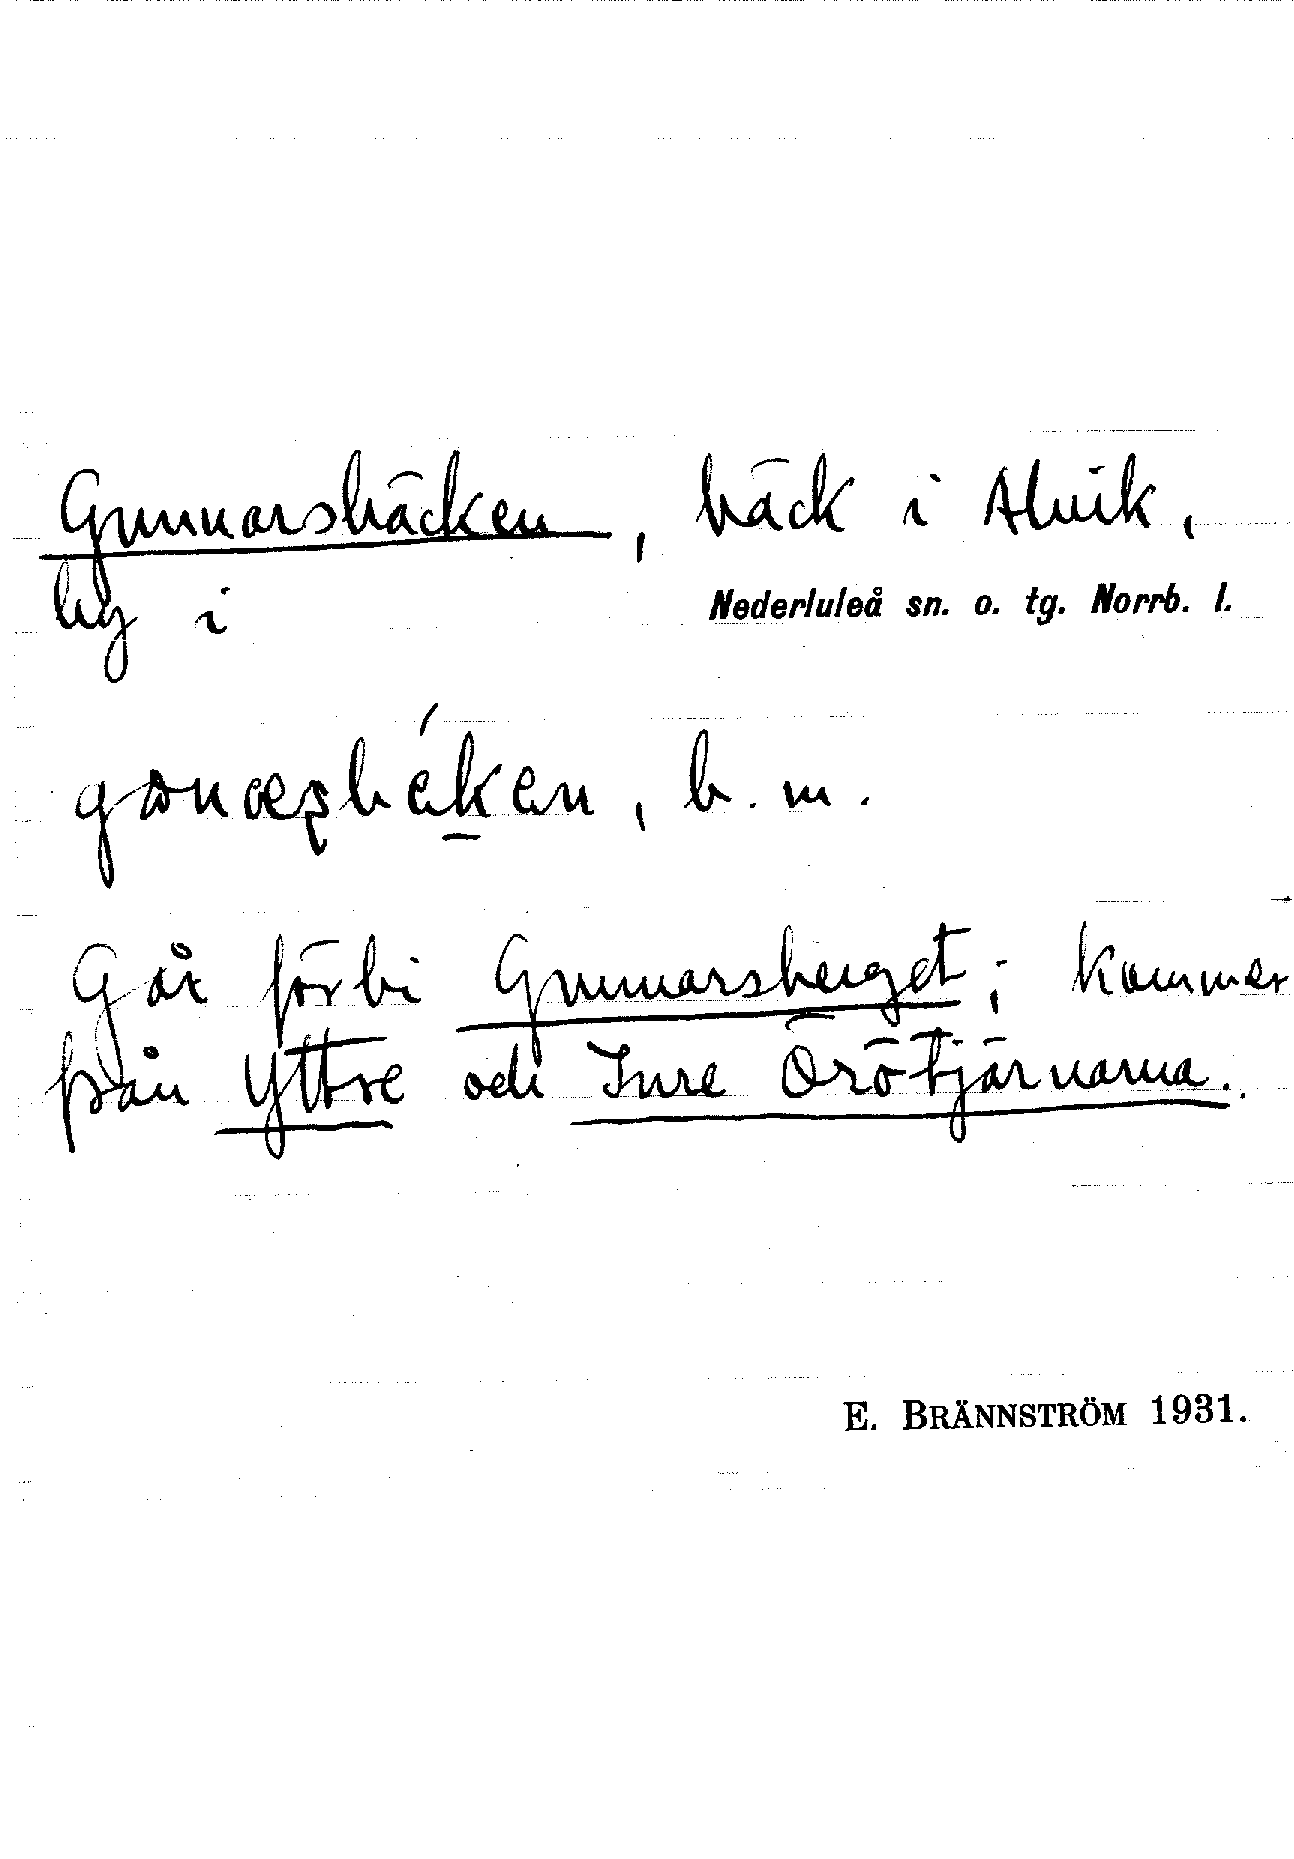 Gunnarsbäcken, bäck i Alvik,
by i Nederluleå sn. o. tg. Norrb. l.
b. m.
Går förbi Gunnarsberget; kommer
från Yttre och Inre Örötjärnarna.
E. BRÄNNSTRÖM 1931.